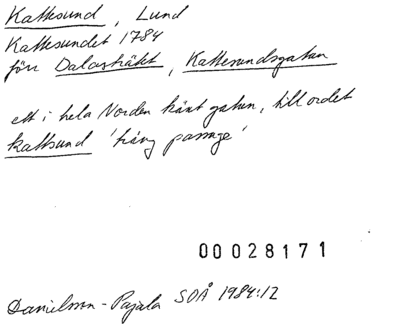 Kattesund, Lund
Kattesundet 1784
förr Dalashäkt, Kattesundsgatan
ett i hela Norden känt gatun, till ordet
kattsund 'trång passage'
00028171
Danielsson-Pajala SOÅ 1984:12